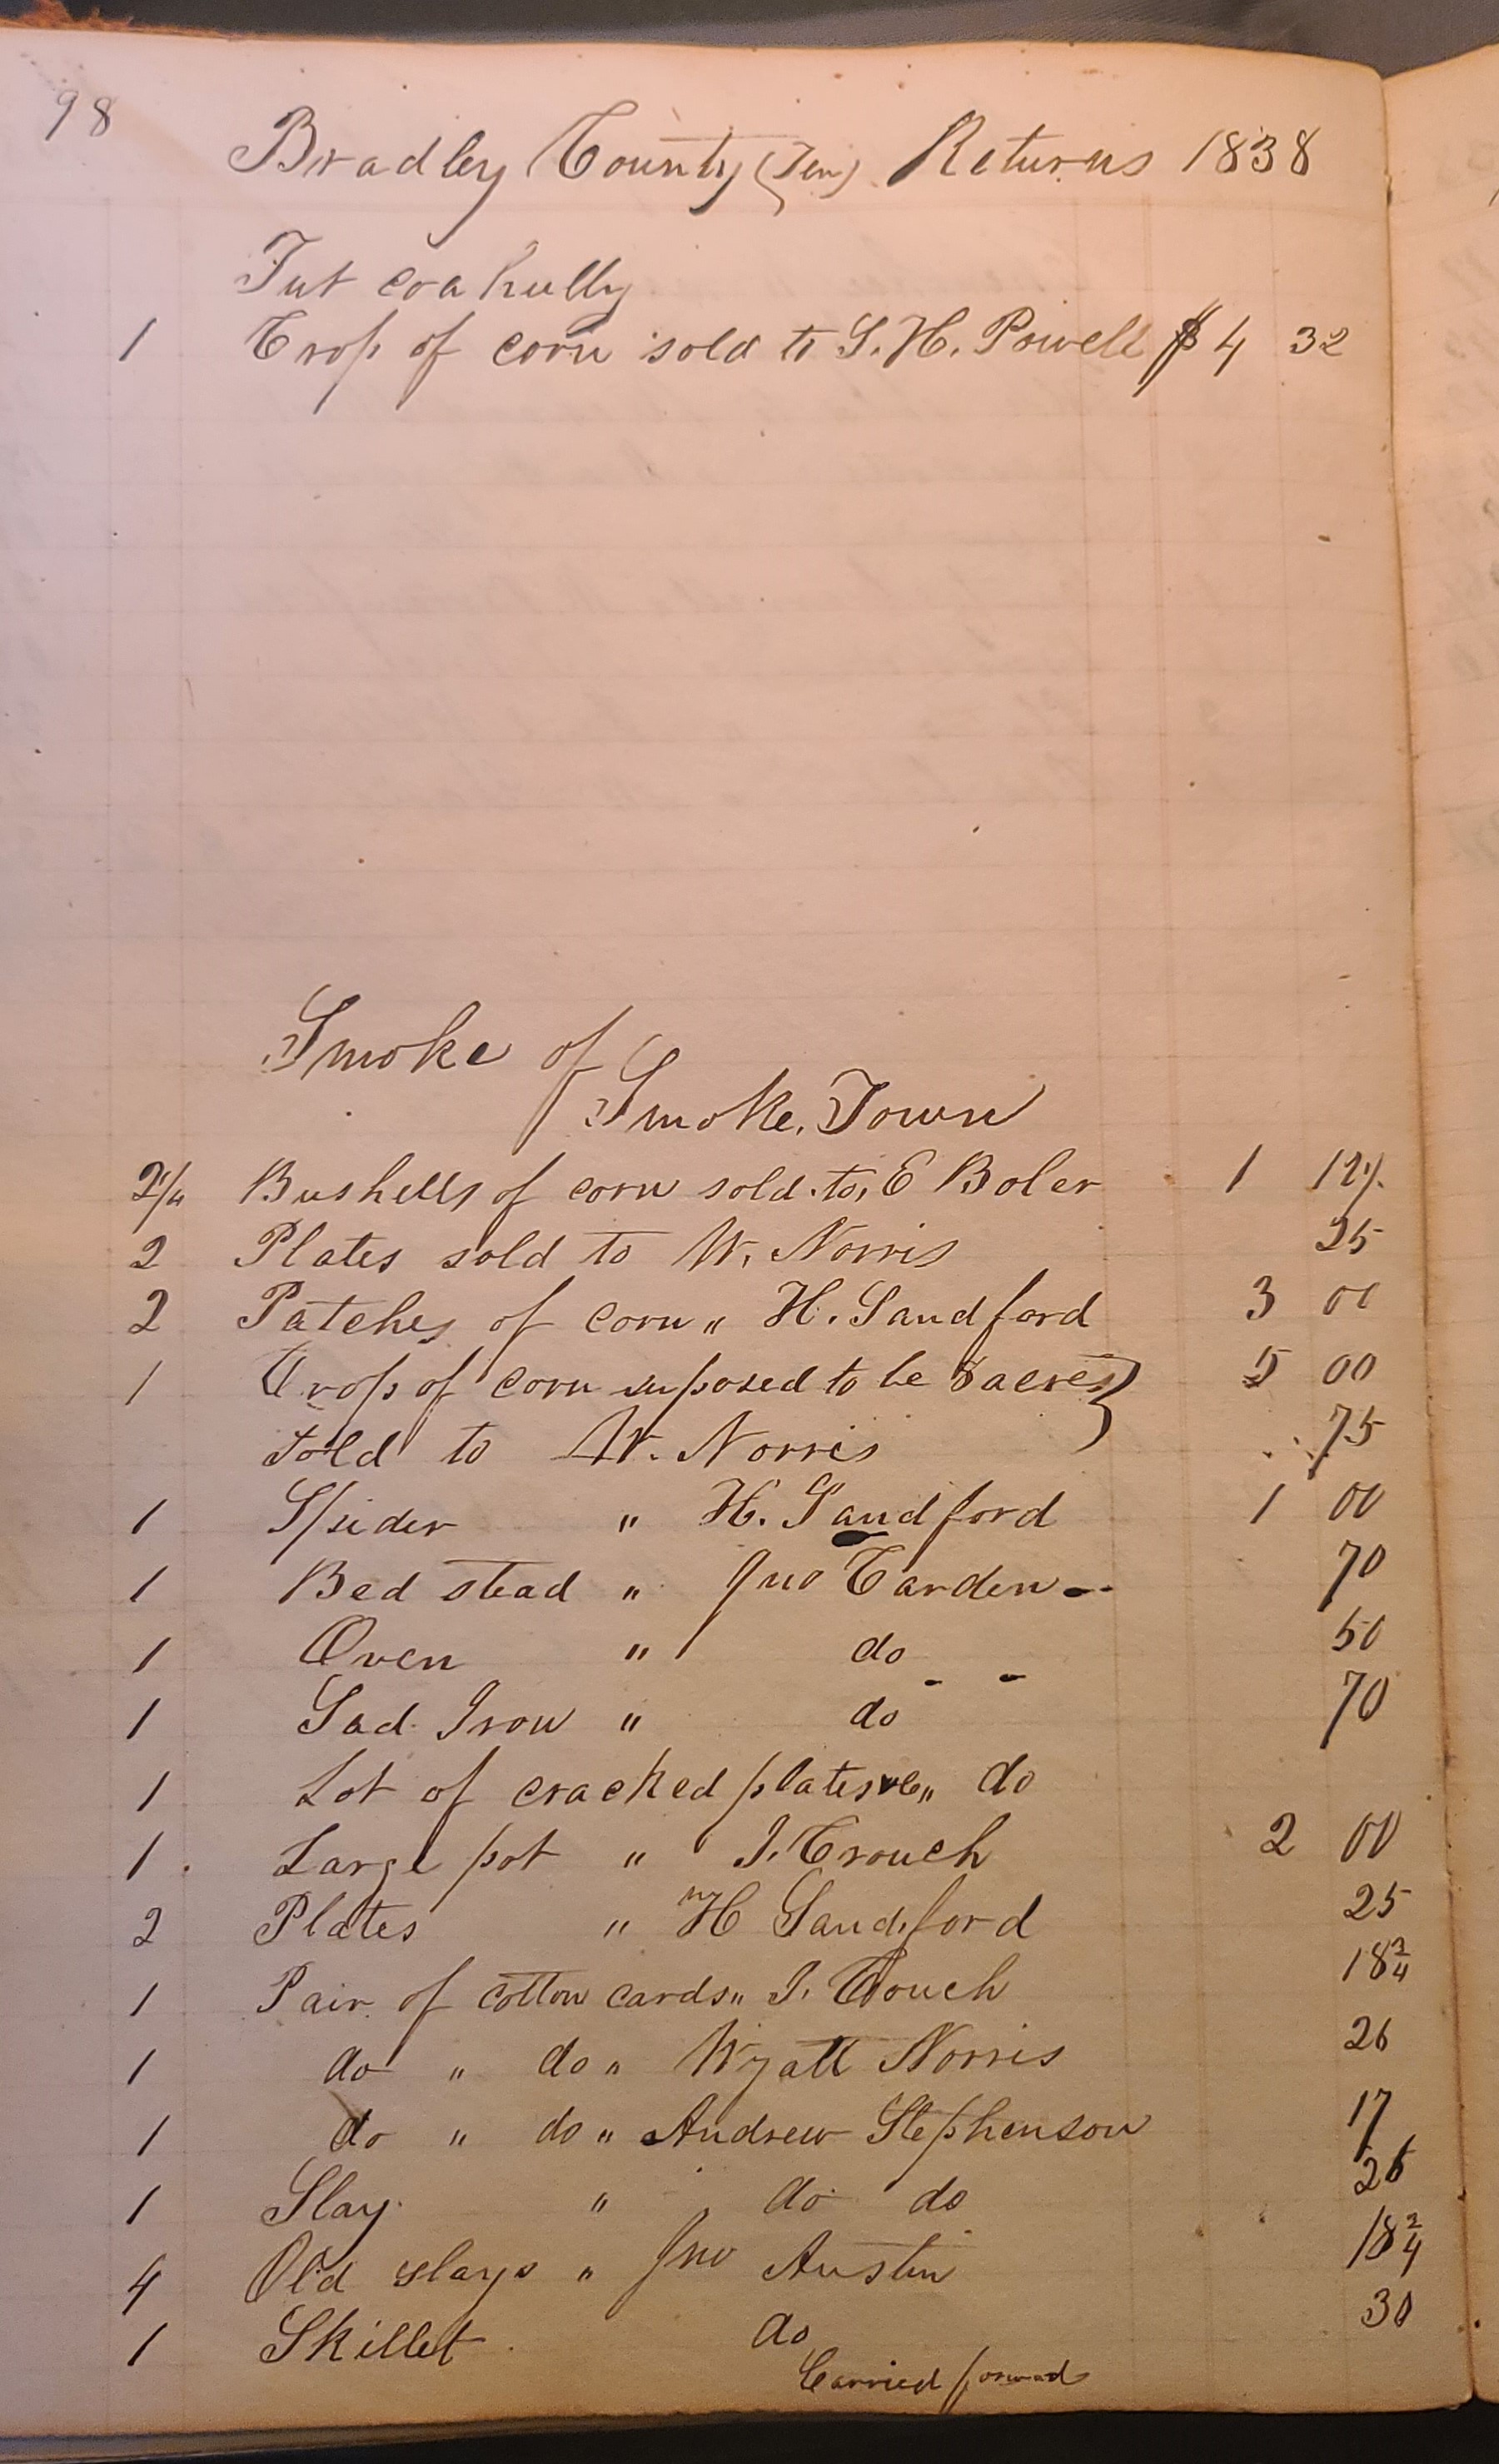 98
Bradley County (Ten) Returns 1838
Tut coahully
1 Crop of corn sold to S. H. Powell $ 4 32
Smoke of
Smoke Town
2 1/4 Bushells of corn sold to, E Boler 1 12 1/2
2 Plates sold to W. Norris 25
2 Patches of corn " H. Sandford 3 00
1 Crop of corn suposed to be 8 acres } 5 00
sold to W. Norris 75
1 Spider " H. Sandford 1 00
1 Bed stead " Jno Carden 70
1 Oven " do 50
1 Sad Iron " do 70
1 Lot of cracked plates &c " do
1 Large pot " J. Crouch 2 00
2 Plates " H Sandford 25
1 Pair of cotton cards " J. Crouch 18 3/4
1 do " do " Wyatt Norris 26
1 do " do " Andrew Stephenson 17
1 Slay " do do
4 Old slays " Jno Austin 18 3/4
1 Skillet do 30
Carried forward